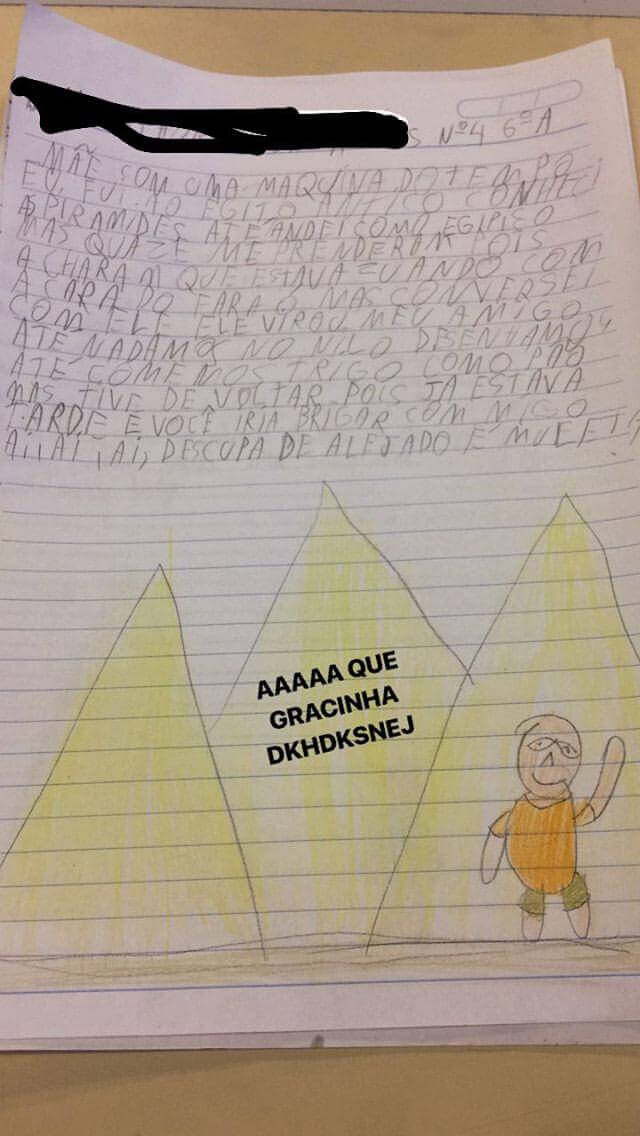 Nº4 6ºA
MÃE COM UMA MAQUINA DO TEMPO
EU FUI AO EGITO ANTIGO CONHECI
AS PIRAMIDES ATÉ ANDEI COMO EGIPISO
MAS QUAZE ME PRENDERAM POIS
ACHARAM QUE ESTAVA ZUANDO COM
A CARA DO FARAÓ MAS CONVERSEI
COM ELE ELE VIROU MEU AMIGO
ATÉ NADAMOS NO NILO DESENHAMOS
ATÉ COMEMOS TRIGO COMO PÃO
MAS TIVE DE VOLTAR POIS JA ESTAVA
TARDE E VOCÊ IRIA BRIGAR COM MIGO
AI, AI, AI, DESCUPA DE ALEJADO É
AAAAA QUE
GRACINHA
DKHDKSNEJ